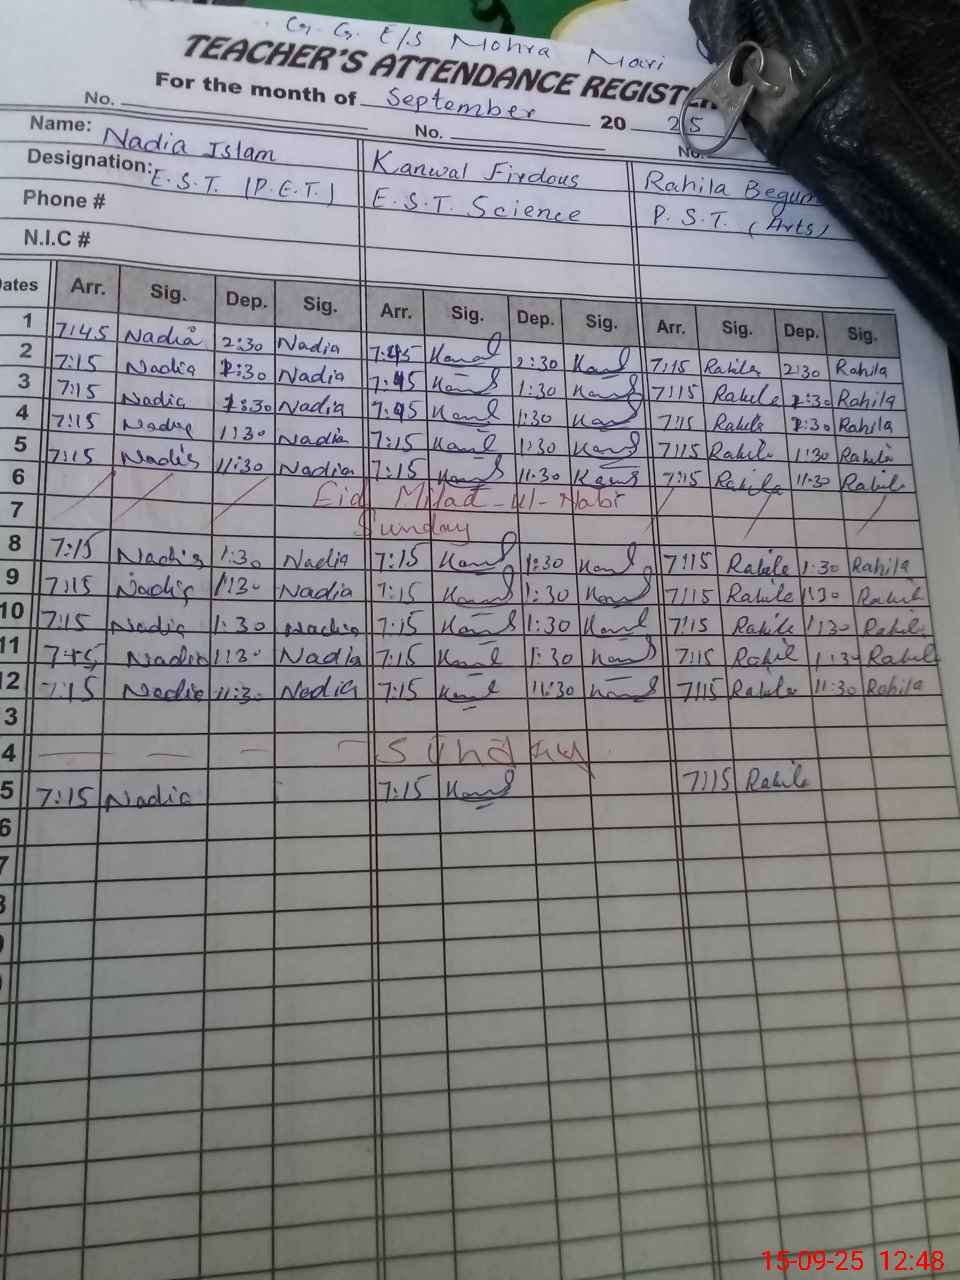 G. G. E/S Mohra Mari
TEACHER'S ATTENDANCE REGISTER
For the month of September 20 25
No. No. No.
Name: Nadia Islam Kanwal Firdous Rahila Begum
Designation: E.S.T. (P.E.T.) E.S.T. Science P.S.T. (Arts)
Phone #
N.I.C #
Dates Arr. Sig. Dep. Sig. Arr. Sig. Dep. Sig. Arr. Sig. Dep. Sig.
1 7:45 Nadia 2:30 Nadia 7:45 Kanwl 2:30 Kanwl 7:15 Rahila 2:30 Rahila
2 7:15 Nadia 1:30 Nadia 7:45 Kanwl 1:30 Kanwl 7:15 Rahila 1:30 Rahila
3 7:15 Nadia 1:30 Nadia 7:45 Kanwl 1:30 Kanwl 7:15 Rahila 1:30 Rahila
4 7:15 Nadia 1:30 Nadia 7:15 Kanwl 1:30 Kanwl 7:15 Rahila 1:30 Rahila
5 7:15 Nadia 11:30 Nadia 7:15 Kanwl 11:30 Kanwl 7:15 Rahila 11:30 Rahila
6 Eid Milad-ul-Nabi
7 Sunday
8 7:15 Nadia 1:30 Nadia 7:15 Kanwl 1:30 Kanwl 7:15 Rahila 1:30 Rahila
9 7:15 Nadia 1:30 Nadia 7:15 Kanwl 1:30 Kanwl 7:15 Rahila 1:30 Rahila
10 7:15 Nadia 1:30 Nadia 7:15 Kanwl 1:30 Kanwl 7:15 Rahila 1:30 Rahila
11 Nadia 1:30 Nadia 7:15 Kanwl 1:30 Kanwl 7:15 Rahila 1:30 Rahila
12 7:15 Nadia 11:30 Nadia 7:15 Kanwl 11:30 Kanwl 7:15 Rahila 11:30 Rahila
3
4 Sunday
5 7:15 Nadia 7:15 Kanwl 7:15 Rahila
6
7
8
15-09-25 12:48